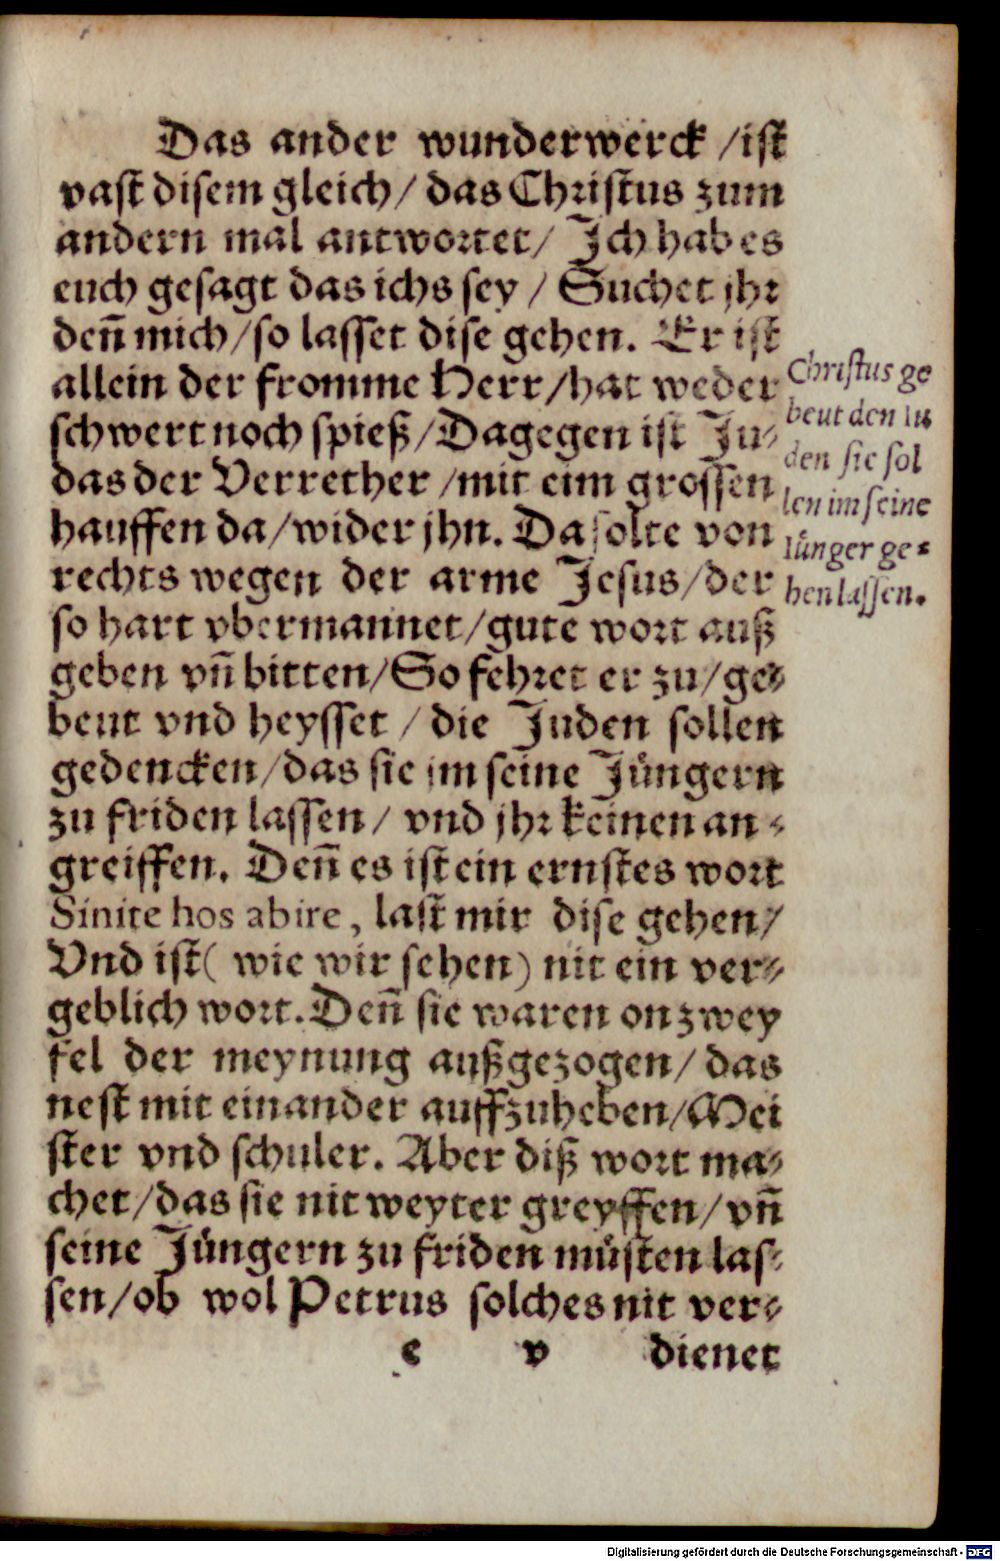 Das ander wunderwerck /ist
vast disem gleich/ das Christus zum
andern mal antwortet/ Ich hab es
euch gesagt das ichs sey / Suchet jhr
deñ mich/so lasset dise gehen. Er ist
allein der fromme Herr/hat weder
schwert noch spieß/Dagegen ist Ju-
das der Verrether /mit eim grossen
hauffen da/wider jhn. Da solte von
rechts wegen der arme Jesus/der
so hart vbermannet/gute wort auß
geben vñ bitten/So fehret er zu/ge-
beut vnd heysset / die Juden sollen
gedencken/das sie jm seine Jüngern
zu friden lassen/ vnd jhr keinen an-
greiffen. Deñ es ist ein ernstes wort
Sinite hos abire, last mir dise gehen/
Vnd ist( wie wir sehen) nit ein ver-
geblich wort. Deñ sie waren on zwey
fel der meynung außgezogen/ das
nest mit einander auffzuheben/Mei
ster vnd schuler. Aber diß wort ma-
chet/das sie nit weyter greyffen/vñ
seine Jüngern zu friden müsten las-
sen/ob wol Petrus solches nit ver-
e v dienet
Christus ge
beut den Iu
den sie sol
len im seine
Iünger ge-
hen lassen.
Digitalisierung gefördert durch die Deutsche Forschungsgemeinschaft - DFG